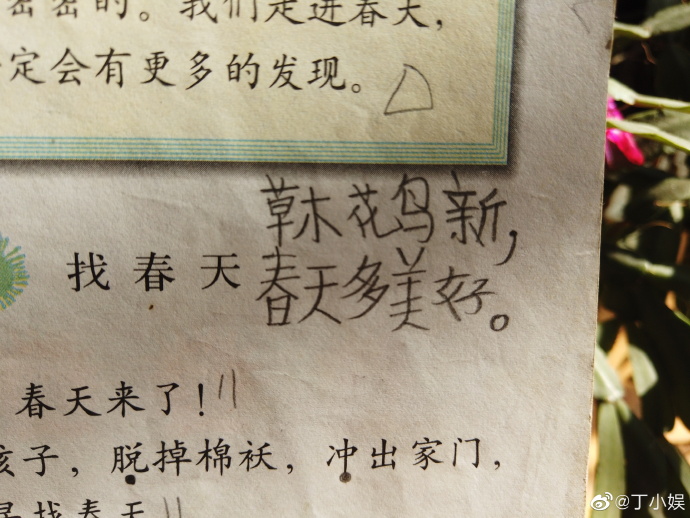 密密的。我们走进春天，
定会有更多的发现。
草木花鸟新，
找春天
春天多美好。
春天来了！
孩子，脱掉棉袄，冲出家门，
寻找春天
@丁小娱